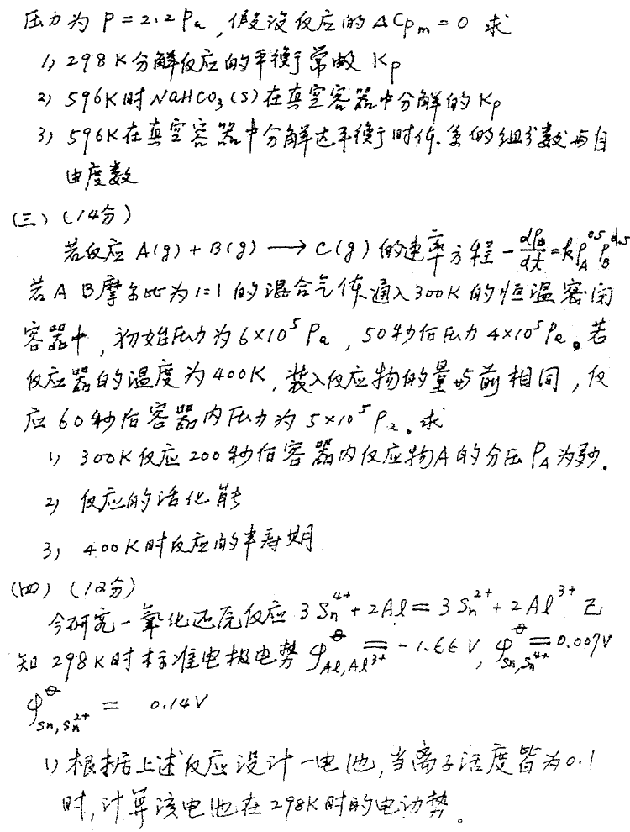 压力为 P=2.2 Pa, 假设反应的 ΔCp,m=0 求
1) 298K分解反应的平衡常数 Kp
2) 596K时 NaHCO3(S) 在真空容器中分解的 Kp
3) 596K在真空容器中分解达平衡时体系的组分数与自
由度数
(三) (14分)
若反应 A(g)+B(g) → C(g) 的速率方程 -dPB/dt=kPA^0.5 PB^0.5
若 A B 摩尔比为 1:1 的混合气体通入 300K 的恒温密闭
容器中, 初始压力为 6×10^5 Pa, 50秒后压力 4×10^5 Pa。若
反应器的温度为 400K, 装入反应物的量与前相同, 反
应 60 秒后容器内压力为 5×10^5 Pa。求
1) 300K 反应 200 秒后容器内反应物A的分压 PA 为
2) 反应的活化能
3) 400K时反应的半寿期
(四) (12分)
今研究一氧化还原反应 3Sn^4+ + 2Al = 3Sn^2+ + 2Al^3+ 已
知 298K时标准电极电势 φ^θ Al,Al^3+ = -1.66V, φ^θ Sn,Sn^4+ = 0.009V
φ^θ Sn,Sn^2+ = 0.14V
1) 根据上述反应设计一电池, 当离子活度皆为 0.1
时, 计算该电池在 298K时的电动势。